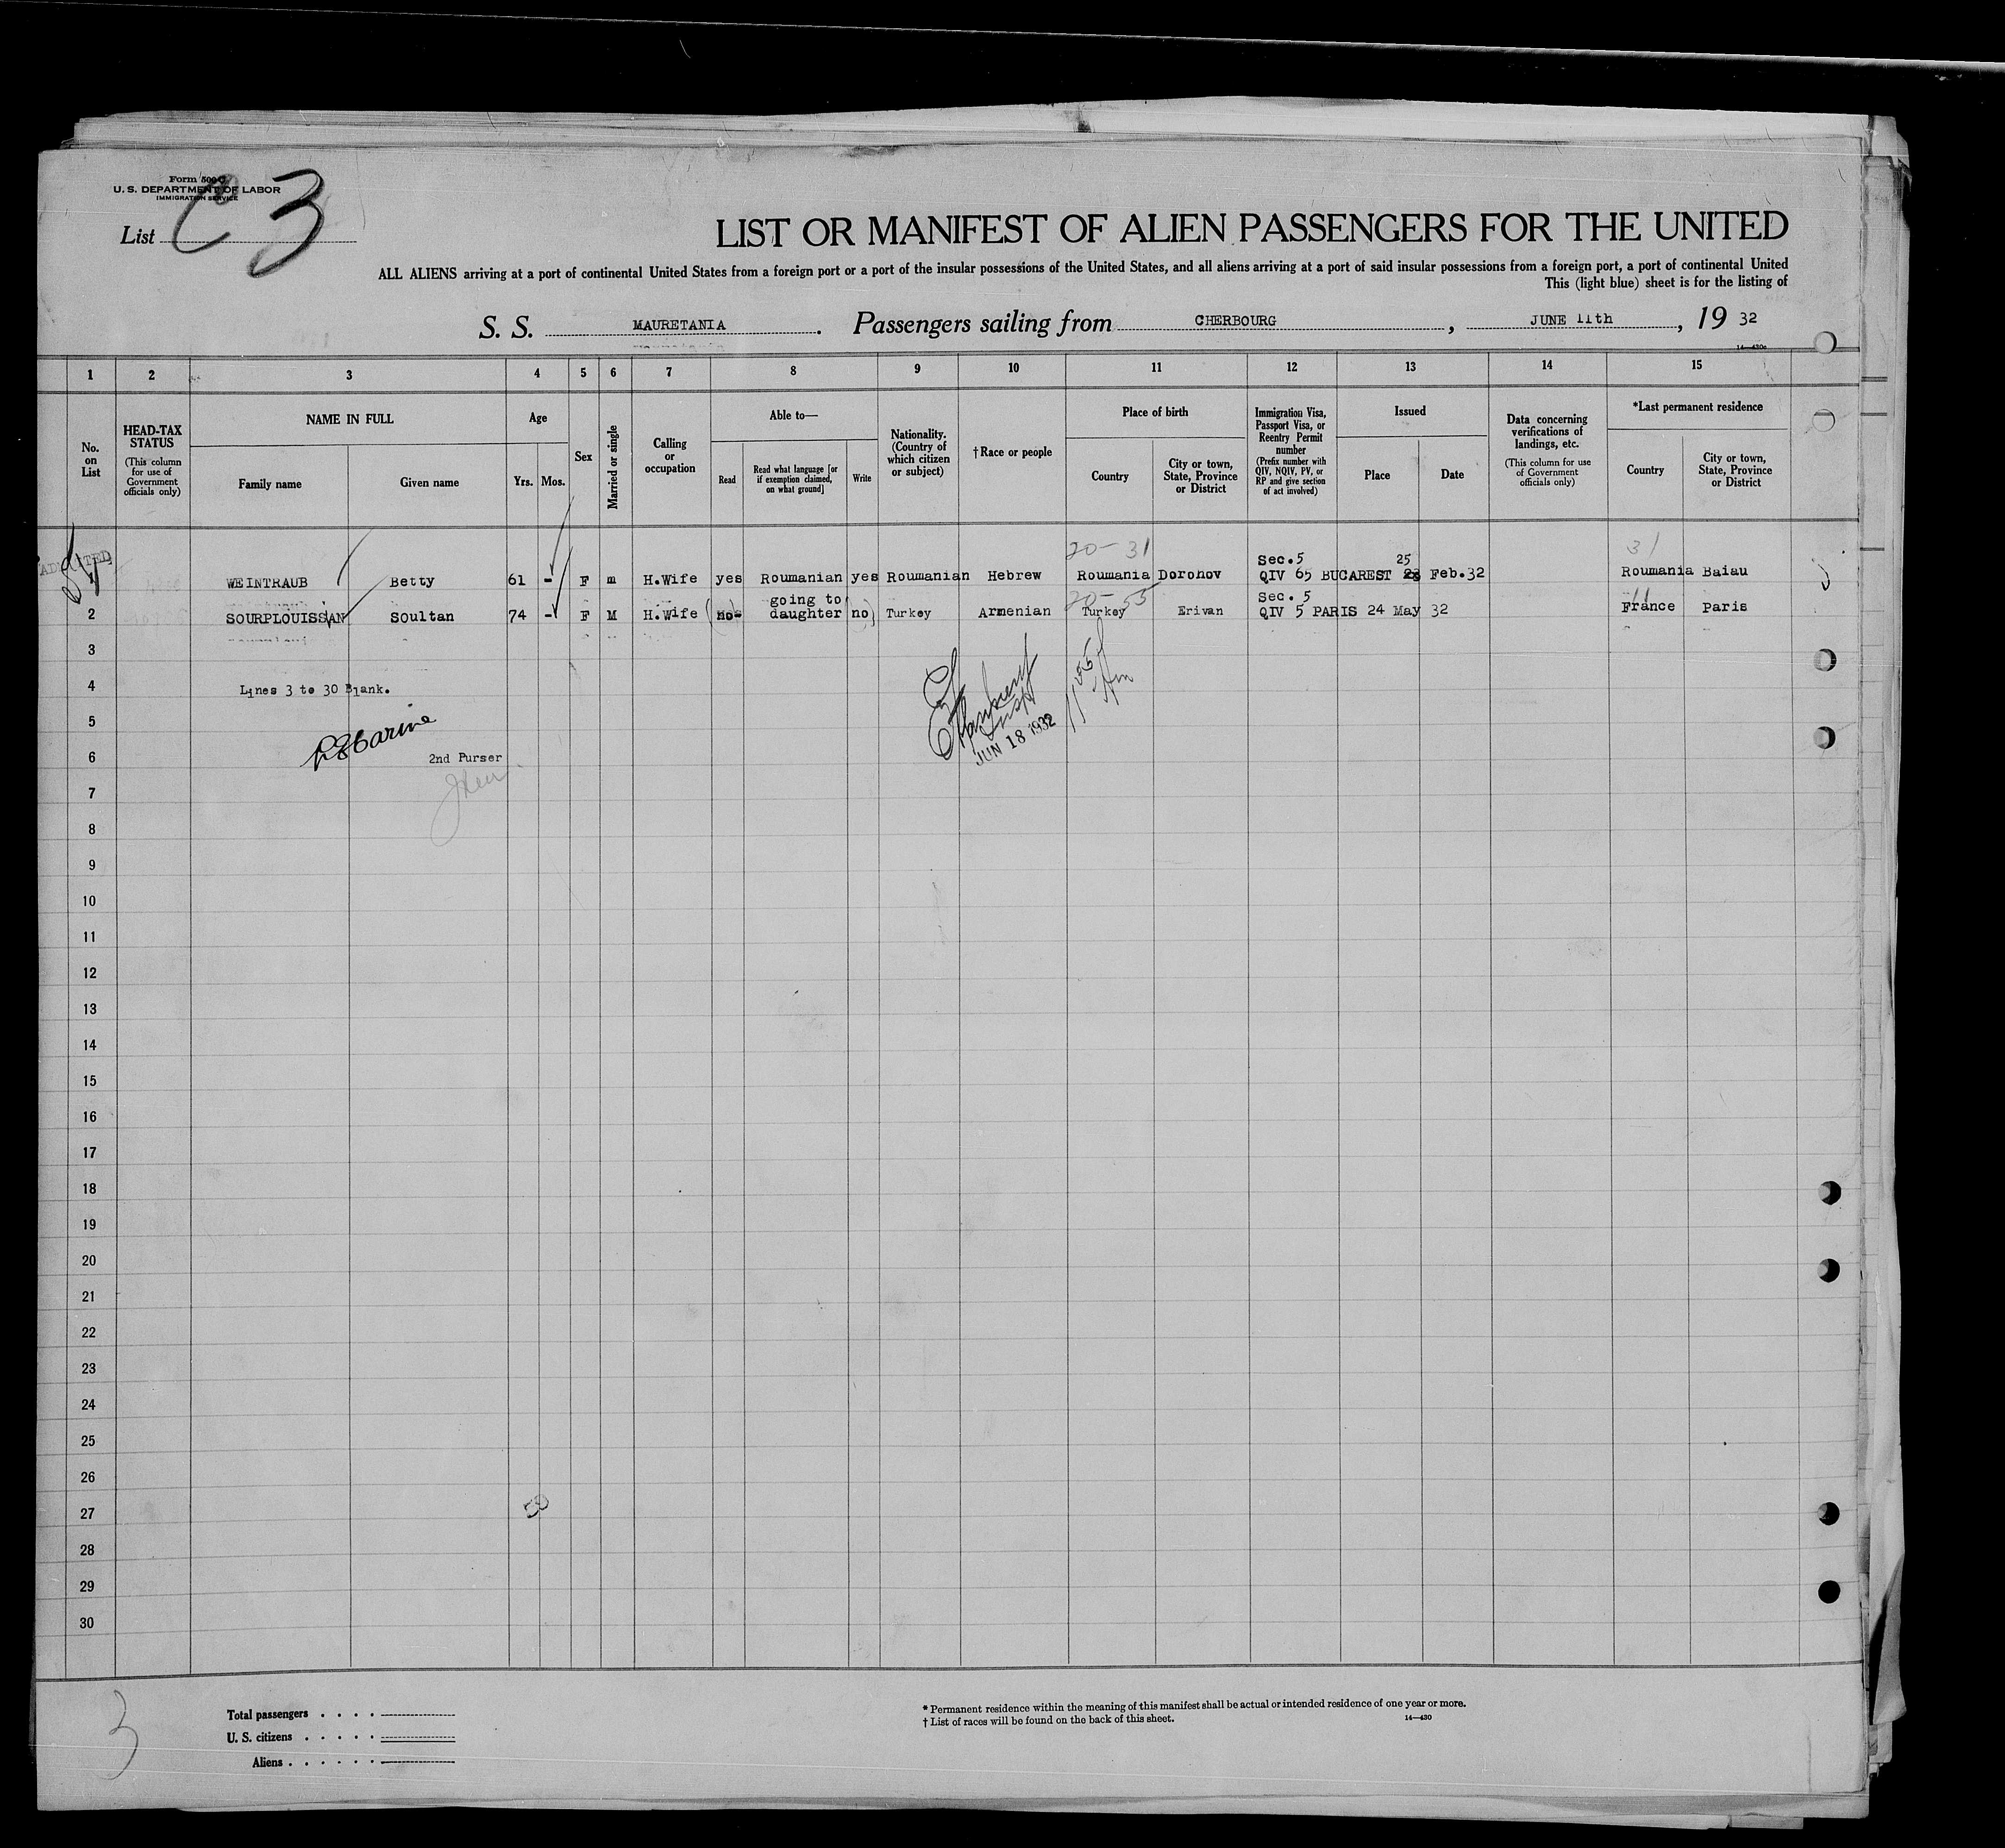 Form 500-C
U. S. DEPARTMENT OF LABOR
IMMIGRATION SERVICE
List C 3
LIST OR MANIFEST OF ALIEN PASSENGERS FOR THE UNITED
ALL ALIENS arriving at a port of continental United States from a foreign port or a port of the insular possessions of the United States, and all aliens arriving at a port of said insular possessions from a foreign port, a port of continental United
This (light blue) sheet is for the listing of
S. S. MAURETANIA. Passengers sailing from CHERBOURG, JUNE 11th, 19 32
14—430c
1 2 3 4 5 6 7 8 9 10 11 12 13 14 15
No. on List
HEAD-TAX STATUS
(This column for use of Government officials only)
NAME IN FULL
Family name
Given name
Age
Yrs.
Mos.
Sex
Married or single
Calling or occupation
Able to—
Read
Read what language [or if exemption claimed, on what ground]
Write
Nationality. (Country of which citizen or subject)
†Race or people
Place of birth
Country
City or town, State, Province or District
Immigration Visa, Passport Visa, or Reentry Permit number
(Prefix number with QIV, NQIV, PV, or RP and give section of act involved)
Issued
Place
Date
Data concerning verifications of landings, etc.
(This column for use of Government officials only)
*Last permanent residence
Country
City or town, State, Province or District
ADMITTED
20-31
Sec.5
25
31
1 WEINTRAUB Betty 61 - F m H.Wife yes Roumanian yes Roumanian Hebrew Roumania Dorohov QIV 65 BUCAREST 23 Feb.32 Roumania Baiau
going to
20-55
Sec. 5
11
2 SOURPLOUISSAN Soultan 74 - F M H.Wife (no- daughter no) Turkey Armenian Turkey Erivan QIV 5 PARIS 24 May 32 France Paris
3
4 Lines 3 to 30 Blank.
5
6 2nd Purser
JUN 18 1932
7
8
9
10
11
12
13
14
15
16
17
18
19
20
21
22
23
24
25
26
27
50
28
29
30
3
Total passengers
U. S. citizens
Aliens
* Permanent residence within the meaning of this manifest shall be actual or intended residence of one year or more.
† List of races will be found on the back of this sheet.
14—430